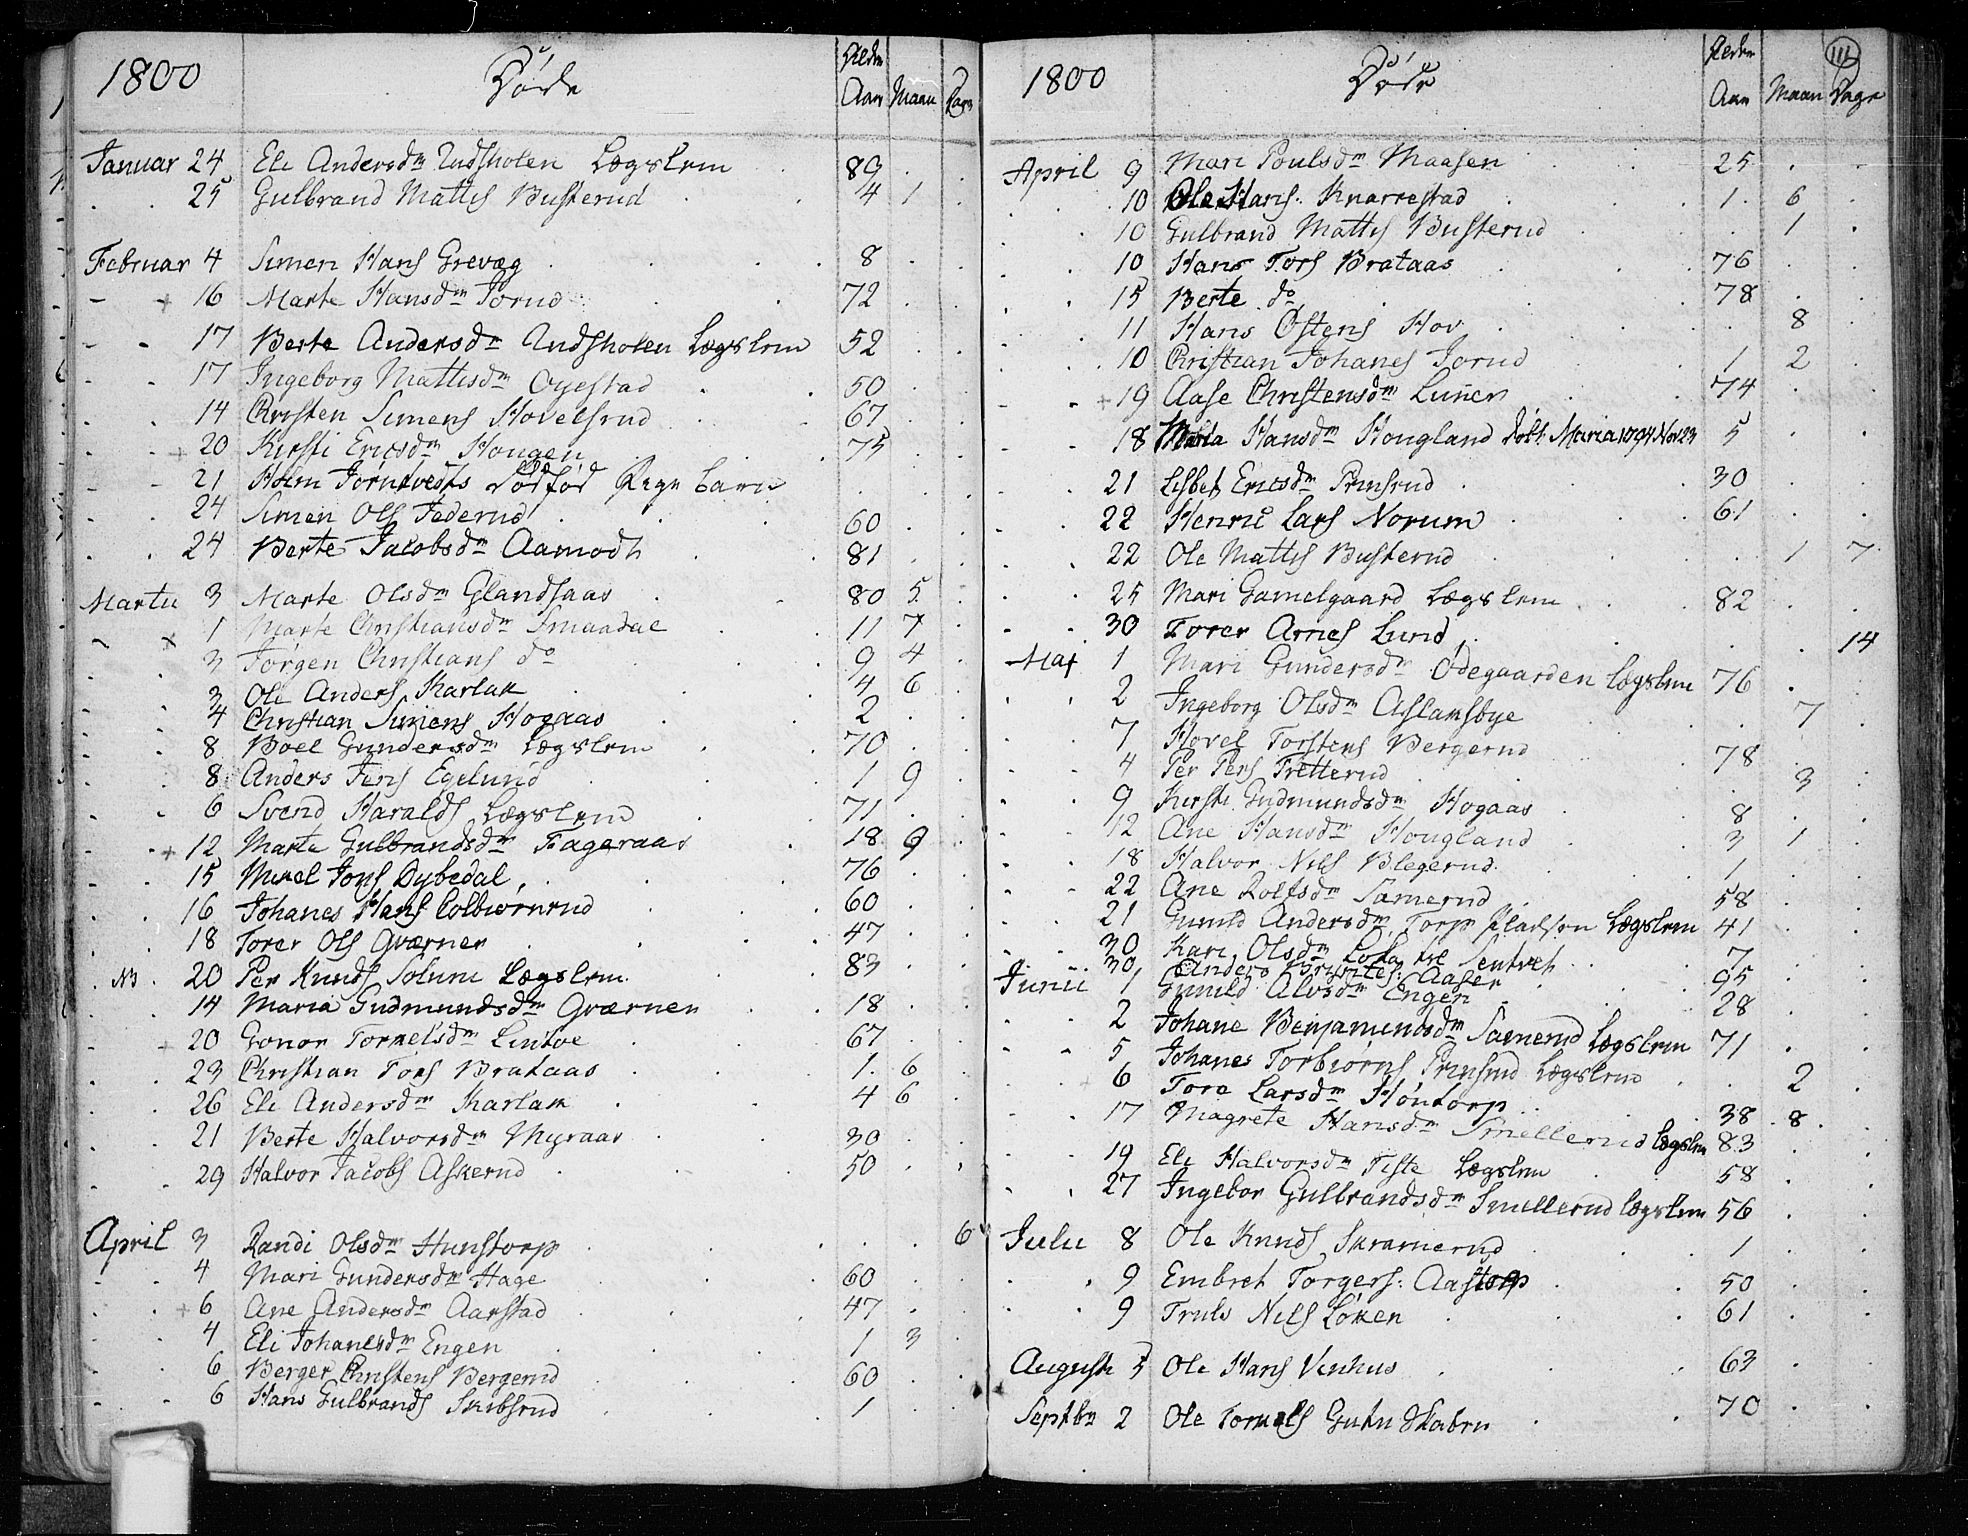 1800 Døde Alder
Aar Maan Dage
Januar 24 Eli Andersdr Lægslem 89
25 Gulbrand Mattis Busterud 4 1
Februar 4 Simen Hans Grevæg 8
16 Marte Hansdr Jorud 72
17 Berte Andersdr Lægslem 52
17 Ingeborg Mattisdr Oyestad 50
14 Christen Simens Hovelsrud 67
20 Kirsti Ericsdr Hougen 75
21 Holm Jorntvedts Dødfød Pige Barn
24 Simen Ols Federud 60
24 Berte Jacobsdr Aamodt 81
Martii 3 Marte Olsdr Glandsaas 80 5
1 Marte Christiansdr Smaadal 11 7
3 Jørgen Christians do 9 4
3 Ole Anders Karlak 4 6
4 Christian Simens Hogaas 2
8 Boel Gundersdr Lægslem 70
8 Anders Jens Egelund 1 9
6 Svend Haralds Lægslem 71
12 Marte Gulbrandsdr Fageraas 18 9
15 Mikel Jons Dybedal 76
16 Johanes Hans Colbiørnrud 60
18 Torer Ols Gværner 47
NB 20 Per Knuds Solum Lægslem 83
14 Maria Gudmundsdr Gværner 18
20 Gonor Torkelsdr Lintoe 67
23 Christian Tors Brataas 1 6
26 Eli Andersdr Karlak 4 6
21 Berte Halvorsdr Myraas 30
29 Halvor Jacobs Askerud 50
April 3 Randi Olsdr Hunstorp 6
4 Mari Gundersdr Hage 60
6 Ane Andersdr Aarstad 47
4 Eli Johanesdr Engen 1 3
6 Berger Christens Bergerud 60
6 Hans Gulbrands Skibsrud 1
111
1800 Døde Alder
Aar Maan Dage
April 9 Mari Poulsdr Maasen 25
10 Ole Hans Knarrestad 1 6
10 Gulbrand Mattis Busterud 1
10 Hans Tors Brataas 76
15 Berte do 78
11 Hans Østens Hov 8
10 Christian Johanes Jorud 1 2
19 Aase Christensdr Lunner 74
18 Maria Hansdr Hougland døbt Maria 1794 Nov 23 5
21 Lisbet Ericsdr Prinsrud 30
22 Henric Lars Norum 61
22 Ole Mattis Busterud 1 7
25 Mari Gamelgaard Lægslem 82
30 Torer Arnes Lund 14
Maj 1 Mari Gundersdr Ødegaarden Lægslem 76
2 Ingeborg Olsdr Aslaksbye 7
7 Hovel Torstens Bergerud 78
4 Per Pers Fretterud 3
9 Kirsti Gudmundsdr Hogaas 8
12 Ane Hansdr Hougland 3 1
18 Halvor Nils Blegerud 1
22 Ane Rolfsdr Samerud 58
21 Gunild Andersdr Torp Lægslem 41
30 Kari Olsdr 7
30 Anders Aaser 95
Junii 1 Gunild Alvsdr Engen 28
2 Johane Benjamindsdr Samerud Lægslem 71
5 Johanes Torbiørns Prinsrud Lægslem
6 Tore Larsdr Høntorp 2
17 Magrete Hansdr Smellerud Lægslem 38 8
83
19 Eli Halvorsdr Fiste Lægslem 58
27 Ingebor Gulbrandsdr Smellerud Lægslem 56
Julii 8 Ole Knuds Skramerud 1
9 Embret Torgers Aastorp 50
9 Truls Nils Løken 61
Augusti 5 Ole Hans Venhus 63
Septbr 2 Ole Torkels 70